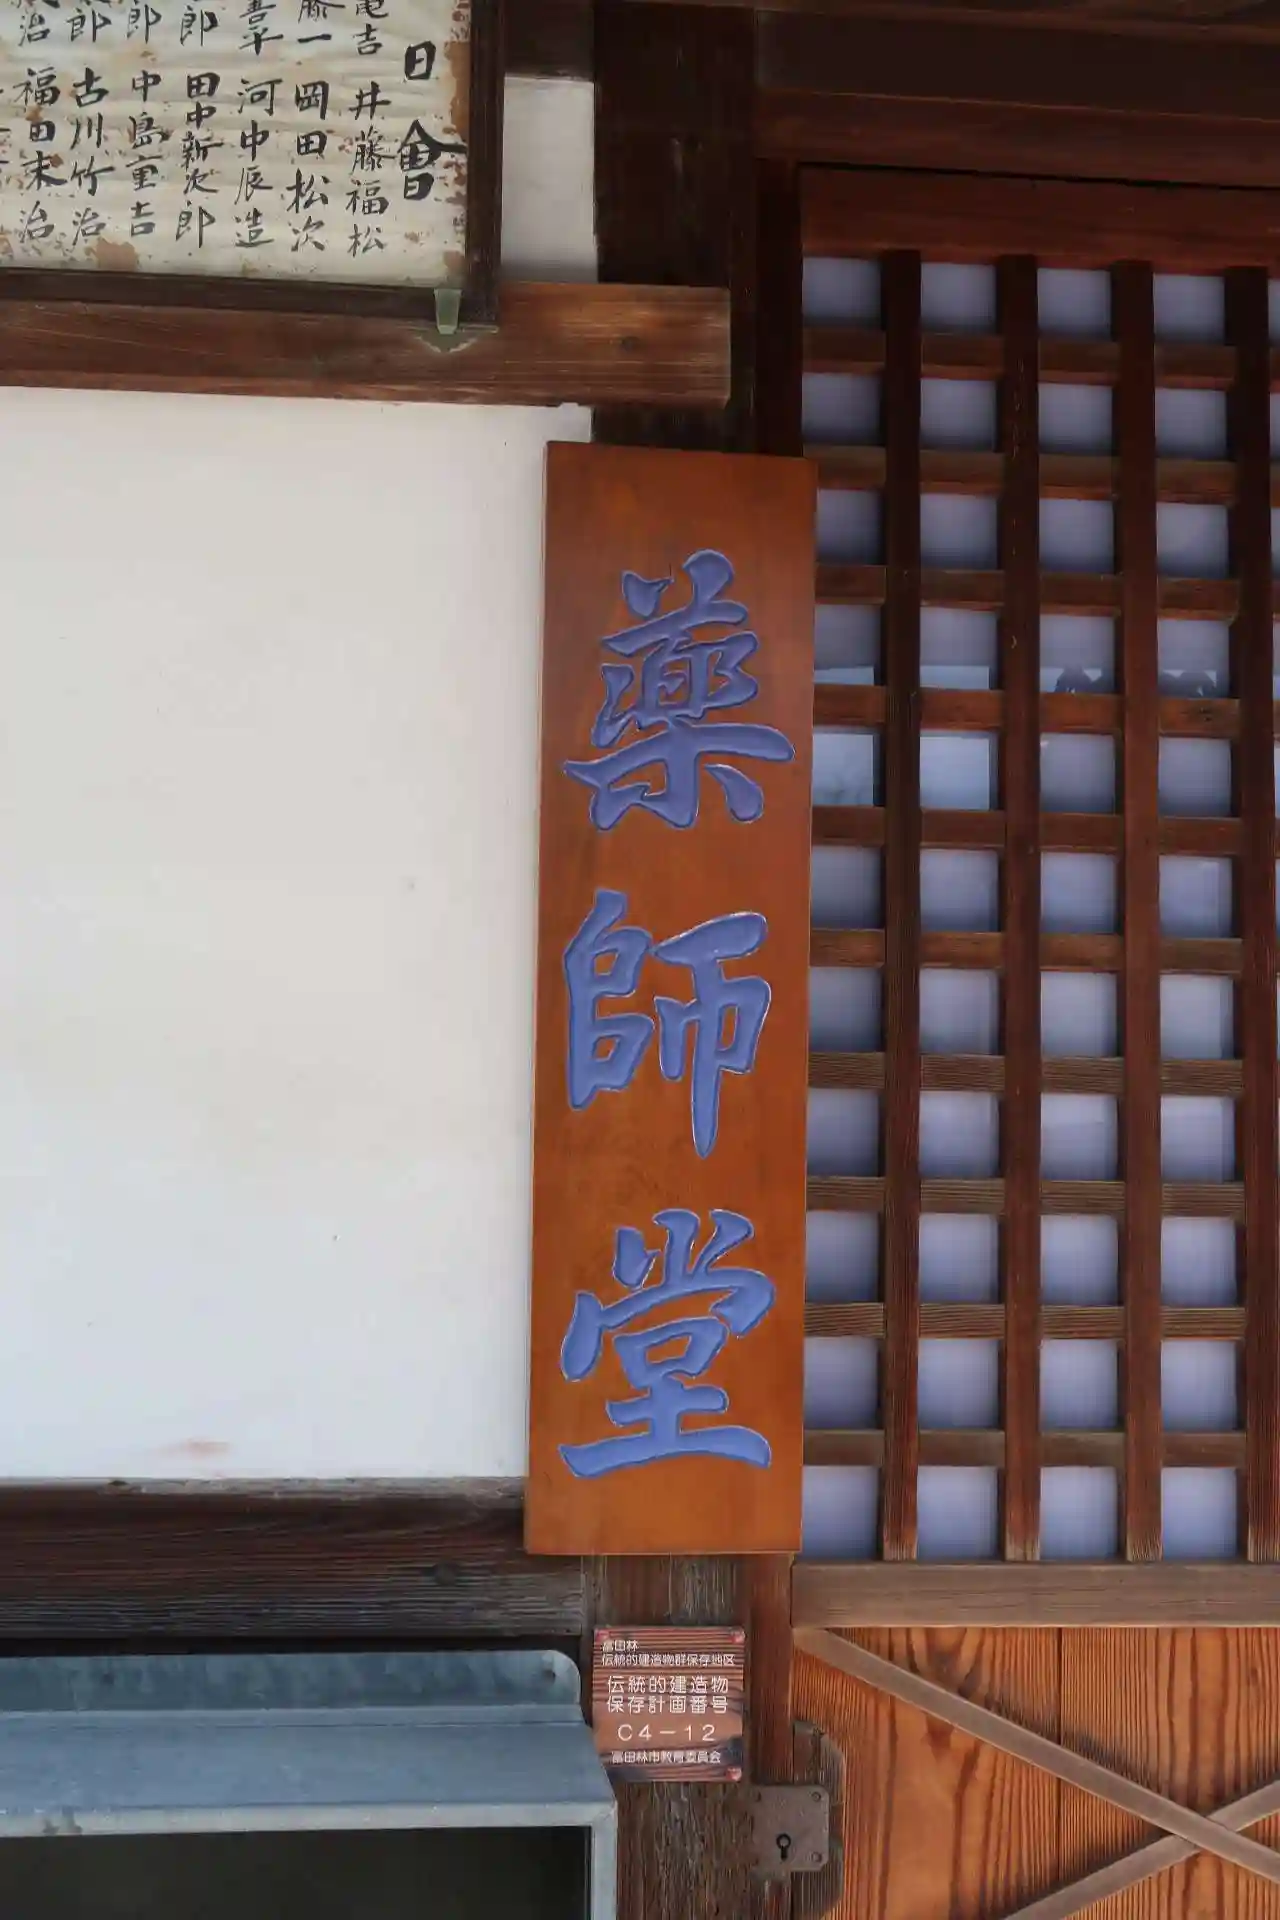 日會
井藤福松
岡田松次
河中辰造
田中新次郎
中島重吉
古川竹治
福田末治
薬師堂
富田林
伝統的建造物群保存地区
伝統的建造物
保存計画番号
C4-12
富田林市教育委員会